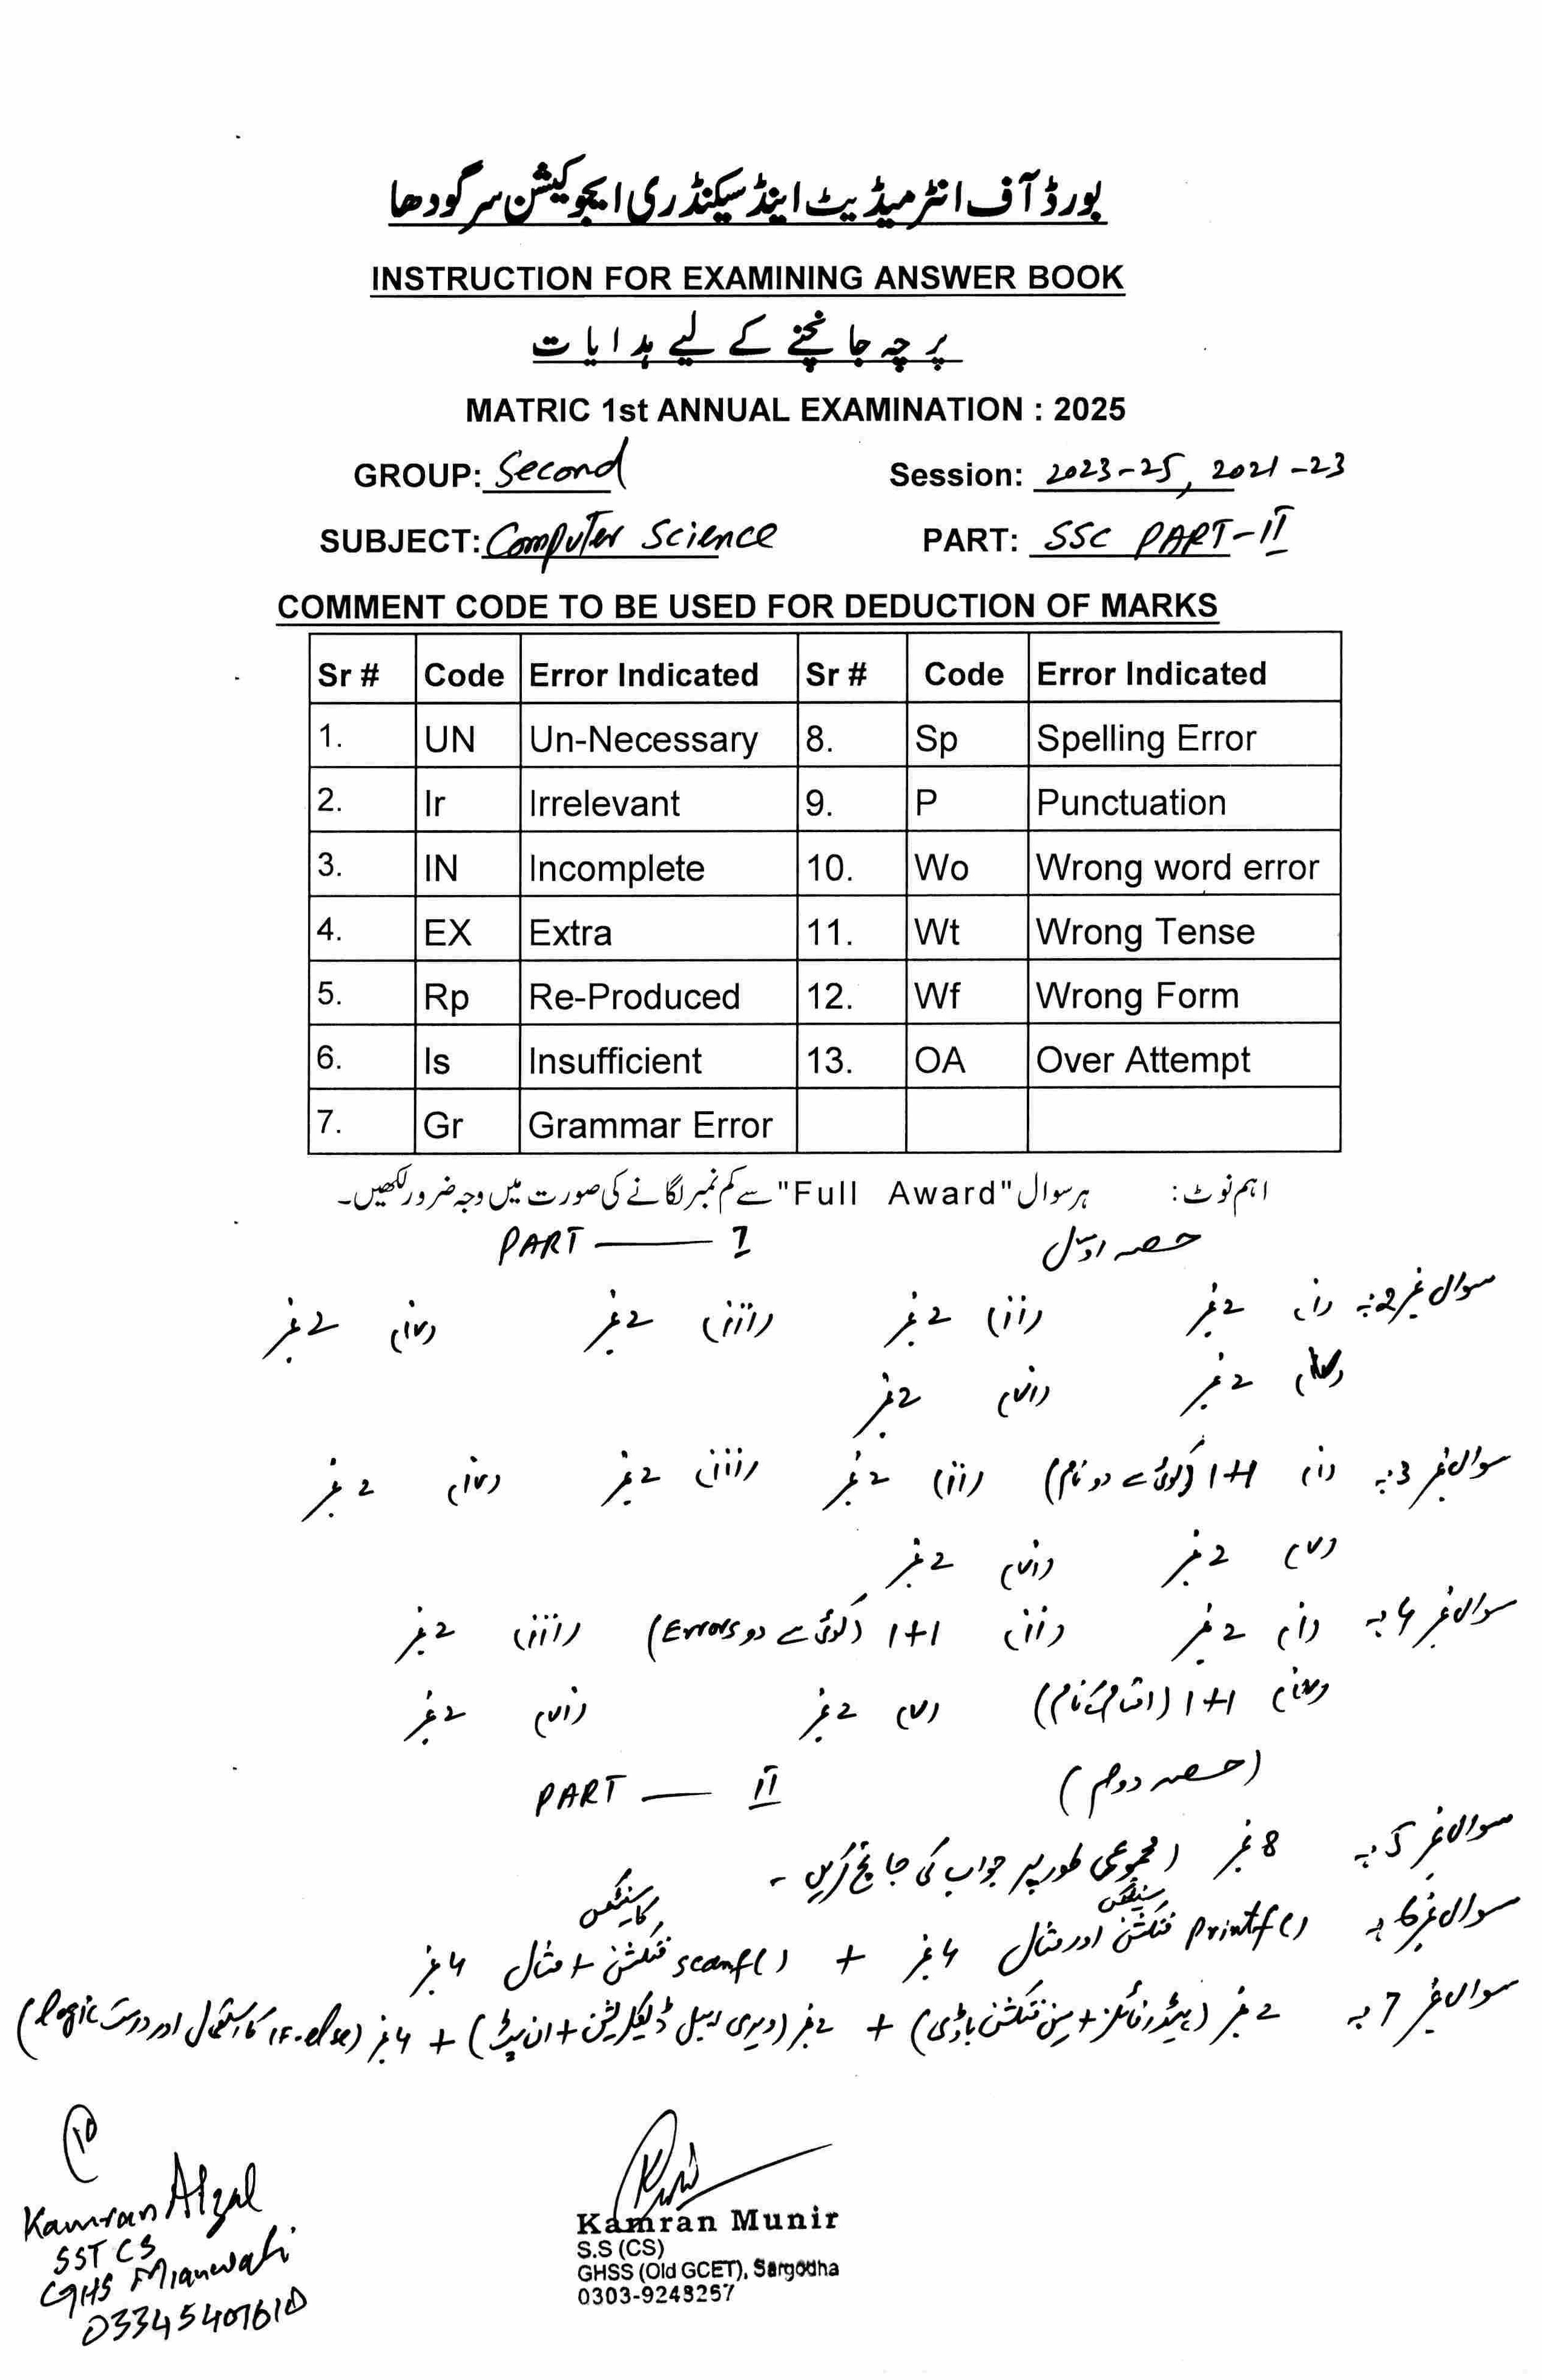 بورڈ آف انٹرمیڈیٹ اینڈ سیکنڈری ایجوکیشن سرگودھا
INSTRUCTION FOR EXAMINING ANSWER BOOK
پرچہ جانچنے کے لیے ہدایات
MATRIC 1st ANNUAL EXAMINATION : 2025
GROUP: Second Session: 2023-25, 2021-23
SUBJECT: Computer Science PART: SSC PART-II
COMMENT CODE TO BE USED FOR DEDUCTION OF MARKS
Sr # Code Error Indicated Sr # Code Error Indicated
1. UN Un-Necessary 8. Sp Spelling Error
2. Ir Irrelevant 9. P Punctuation
3. IN Incomplete 10. Wo Wrong word error
4. EX Extra 11. Wt Wrong Tense
5. Rp Re-Produced 12. Wf Wrong Form
6. Is Insufficient 13. OA Over Attempt
7. Gr Grammar Error
اہم نوٹ: ہر سوال "Full Award" سے کم نمبر لگانے کی صورت میں وجہ ضرور لکھیں۔
حصہ اوّل PART — I
سوال نمبر 2: (i) 2 نمبر (ii) 2 نمبر (iii) 2 نمبر (iv) 2 نمبر
(v) 2 نمبر (vi) 2 نمبر
سوال نمبر 3: (i) 1+1 (کوئی سے دو نام) (ii) 2 نمبر (iii) 2 نمبر (iv) 2 نمبر
(v) 2 نمبر (vi) 2 نمبر
سوال نمبر 4: (i) 2 نمبر (ii) 1+1 (کوئی سے دو Errors) (iii) 2 نمبر
(iv) 1+1 (اقسام کے نام) (v) 2 نمبر (vi) 2 نمبر
(حصہ دوم) PART — II
سوال نمبر 5: 8 نمبر (مجموعی طور پر جواب کی جانچ کریں۔
سوال نمبر 6: printf() فنکشن سینٹکس اور مثال 4 نمبر + scanf() فنکشن کا سینٹکس + مثال 4 نمبر
سوال نمبر 7: 2 نمبر (ہیڈر فائلز + مین فنکشن باڈی) + 2 نمبر (ویری ایبل ڈیکلریشن + ان پٹ) + 4 نمبر (if-else کا استعمال اور درست logic)
Kamran Afzal
SST CS
GHS Mianwali
03345407610
Kamran Munir
S.S (CS)
GHSS (Old GCET), Sargodha
0303-9248267